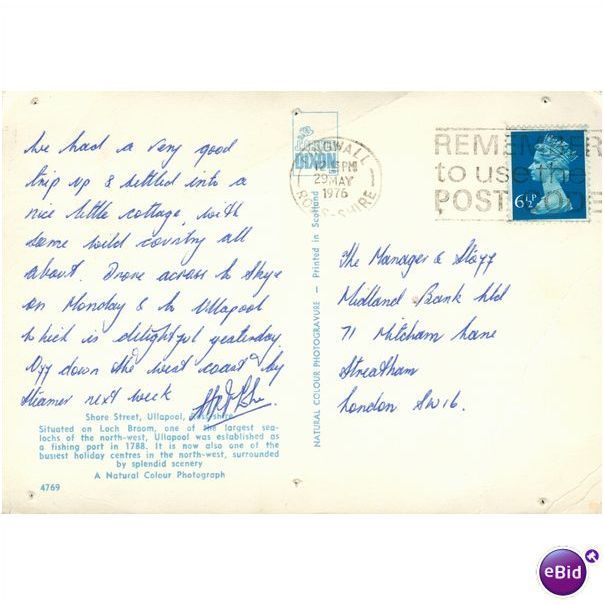 We had a very good
trip up & settled into a
nice little cottage, with
some wild country all
about. Drove across to Skye
on Monday & to Ullapool
which is delightful yesterday.
Off down the west coast by
Steamer next week
Shore Street, Ullapool,
Situated on Loch Broom, one of the largest sea-
lochs of the north-west, Ullapool was established as
a fishing port in 1788. It is now also one of the
busiest holiday centres in the north-west, surrounded
by splendid scenery
A Natural Colour Photograph
4769
DIXON
NATURAL COLOUR PHOTOGRAVURE — Printed in Scotland
DINGWALL
12 15PM
29 MAY
1976
ROSS-SHIRE
REMEMBER
to use the
POST CODE
6½P
The Manager & Staff
Midland Bank Ltd
71 Mitcham Lane
Streatham
London SW16.
eBid